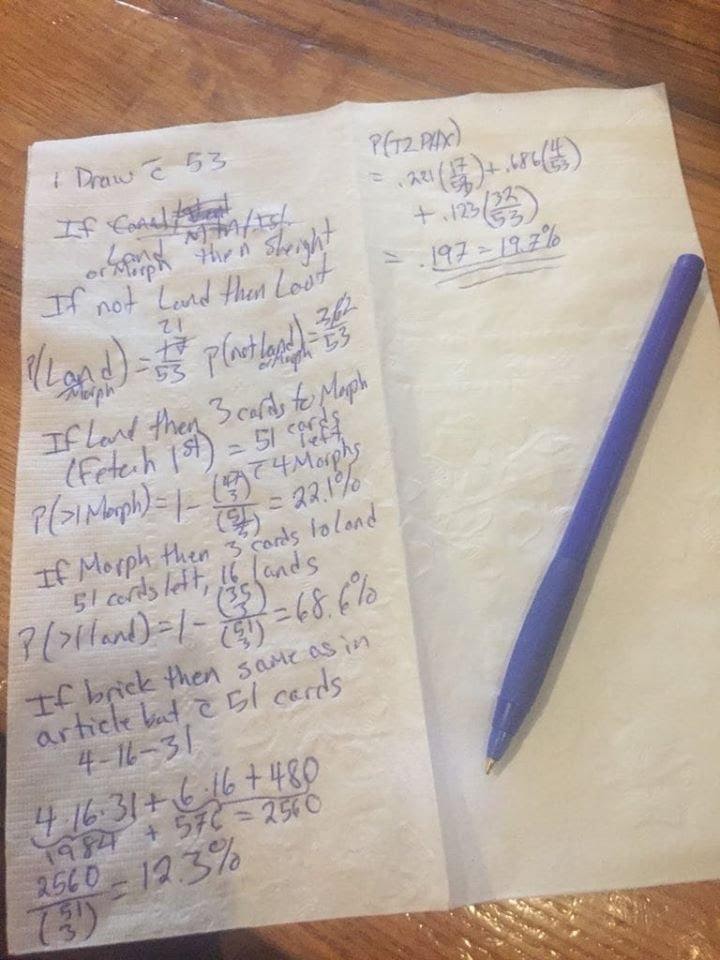 1 Draw c̄ 53
If Land
or Morph then Sleight
If not Land then Loot
P(Land/Morph) = 21/53 P(not land or Morph) = 32/53
If Land then 3 cards to Morph
(Fetch 1st) = 51 cards left
c̄ 4 Morphs
P(>1 Morph) = 1 - (47 3)/(51 3) = 22.1%
If Morph then 3 cards to land
51 cards left, 16 lands
P(>1 land) = 1 - (35 3)/(51 3) = 68.6%
If brick then same as in
article but c̄ 51 cards
4-16-31
4·16·31 + 6·16 + 480
1984 + 576 = 2560
2560/(51 3) = 12.3%
P(T2 PHX)
= .221(17/53) + .686(4/53)
+ .123(32/53)
= .197 = 19.7%